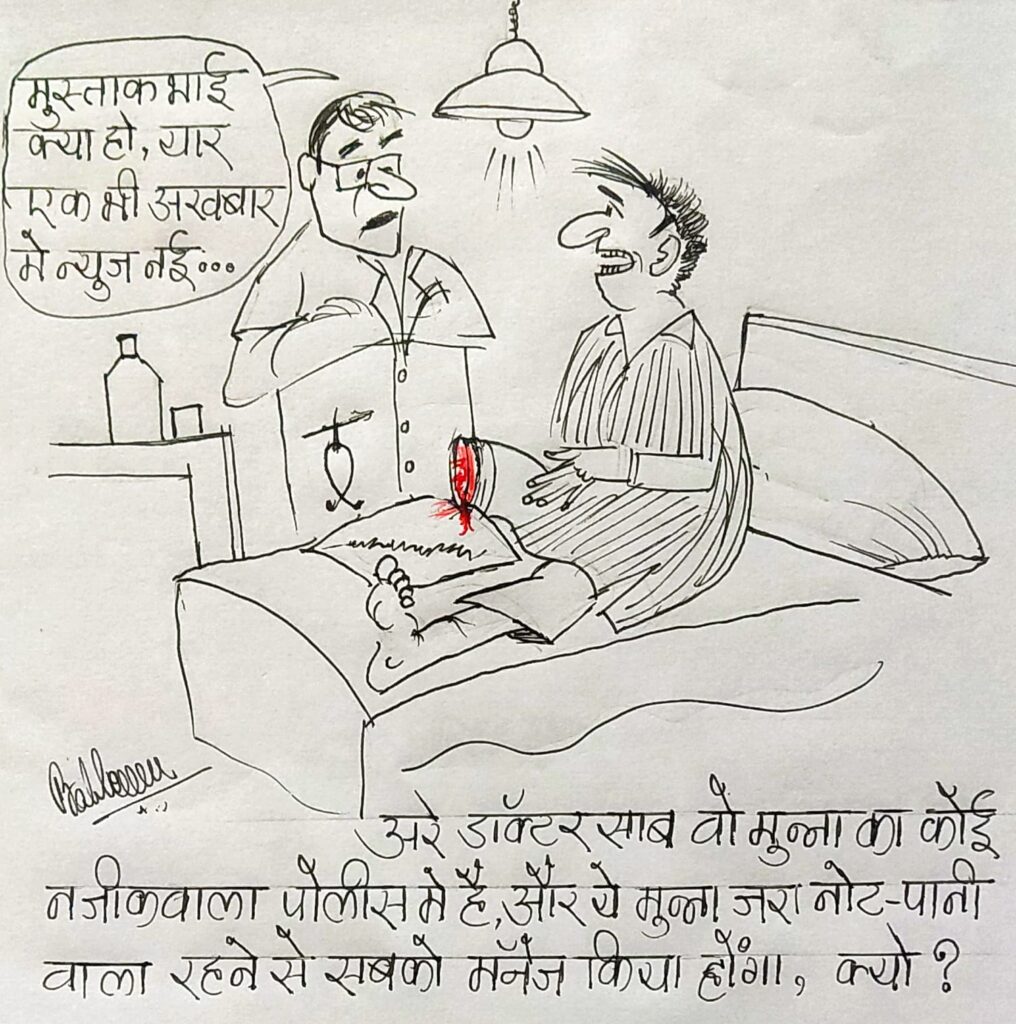 मुस्ताक भाई
क्या हो, यार
एक भी अखबार
मे न्युज नई...
अरे डॉक्टर साब वो मुन्ना का कोई
नजीकवाला पोलीस मे है, और ये मुन्ना जरा नोट-पानी
वाला रहने से सबको मॅनेज किया होंगा, क्यो ?